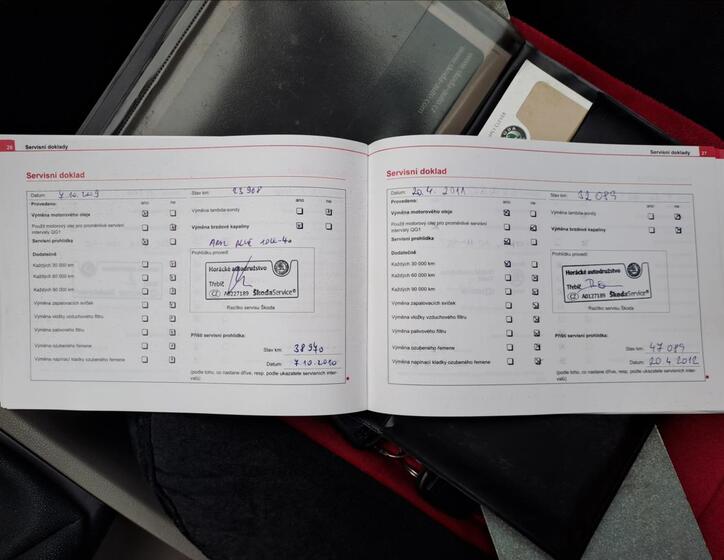 26 Servisní doklady
Servisní doklad
Datum: 7.10.2009 Stav km: 23 908
Provedeno: ano ne ano ne
Výměna motorového oleje Výměna lambda-sondy
Použit motorový olej pro proměnlivé servisní intervaly QG1 Výměna brzdové kapaliny
Servisní prohlídka
Dodatečně
Každých 30 000 km Prohlídku provedl:
Každých 60 000 km Horácké autodružstvo
Každých 90 000 km Třebíč
CZ A0227189 ŠkodaService®
Výměna zapalovacích svíček Razítko servisu Škoda
Výměna vložky vzduchového filtru
Výměna palivového filtru Příští servisní prohlídka:
Výměna ozubeného řemene Stav km: 38 940
Výměna napínací kladky ozubeného řemene Datum: 7.10.2010
(podle toho, co nastane dříve, resp. podle ukazatele servisních intervalů)
Servisní doklady 27
Servisní doklad
Datum: 20.4.2011 Stav km: 32 089
Provedeno: ano ne ano ne
Výměna motorového oleje Výměna lambda-sondy
Použit motorový olej pro proměnlivé servisní intervaly QG1 Výměna brzdové kapaliny
Servisní prohlídka
Dodatečně
Každých 30 000 km Prohlídku provedl:
Každých 60 000 km Horácké autodružstvo
Každých 90 000 km Třebíč
CZ A0127189 ŠkodaService®
Výměna zapalovacích svíček Razítko servisu Škoda
Výměna vložky vzduchového filtru
Výměna palivového filtru Příští servisní prohlídka:
Výměna ozubeného řemene Stav km: 47 089
Výměna napínací kladky ozubeného řemene Datum: 20.4.2012
(podle toho, co nastane dříve, resp. podle ukazatele servisních intervalů)